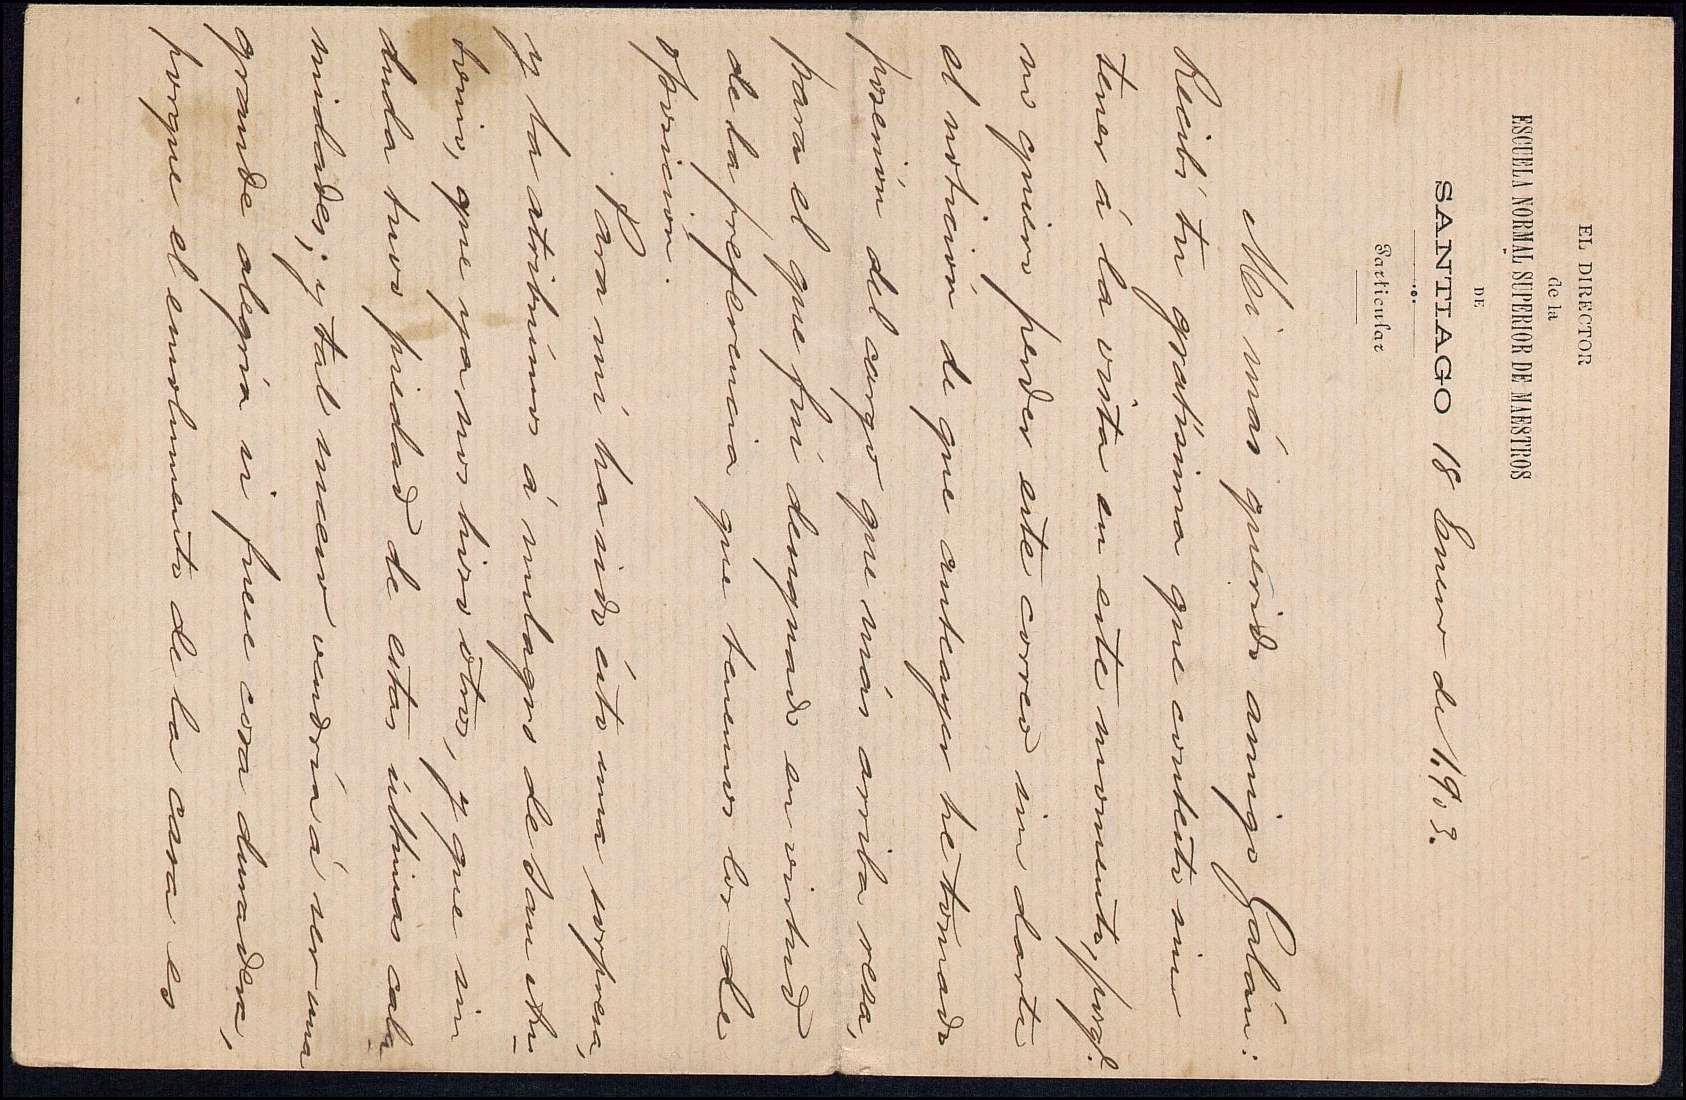 EL DIRECTOR
de la
ESCUELA NORMAL SUPERIOR DE MAESTROS
DE
SANTIAGO 18 Enero de 1.903.
Particular
Mi más querido amigo Galán:
Recibí tu gratísima que contesto sin
tener á la vista en este momento, porq.e
no quiero perder este correo sin darte
el notición de que anteayer he tomado
posesión del cargo que más arriba reza,
para el que fuí designado en virtud
de la preferencia que tenemos los de
oposición.
Para mí ha sido ésto una sorpresa,
y la atribuimos á milagro de San An
tonio, que ya nos hizo otros, y que sin
duda tuvo piedad de estas últimas cala
midades; y tal suceso vendría á ser una
grande alegría si fuese cosa duradera,
porque el emolumento de la casa es